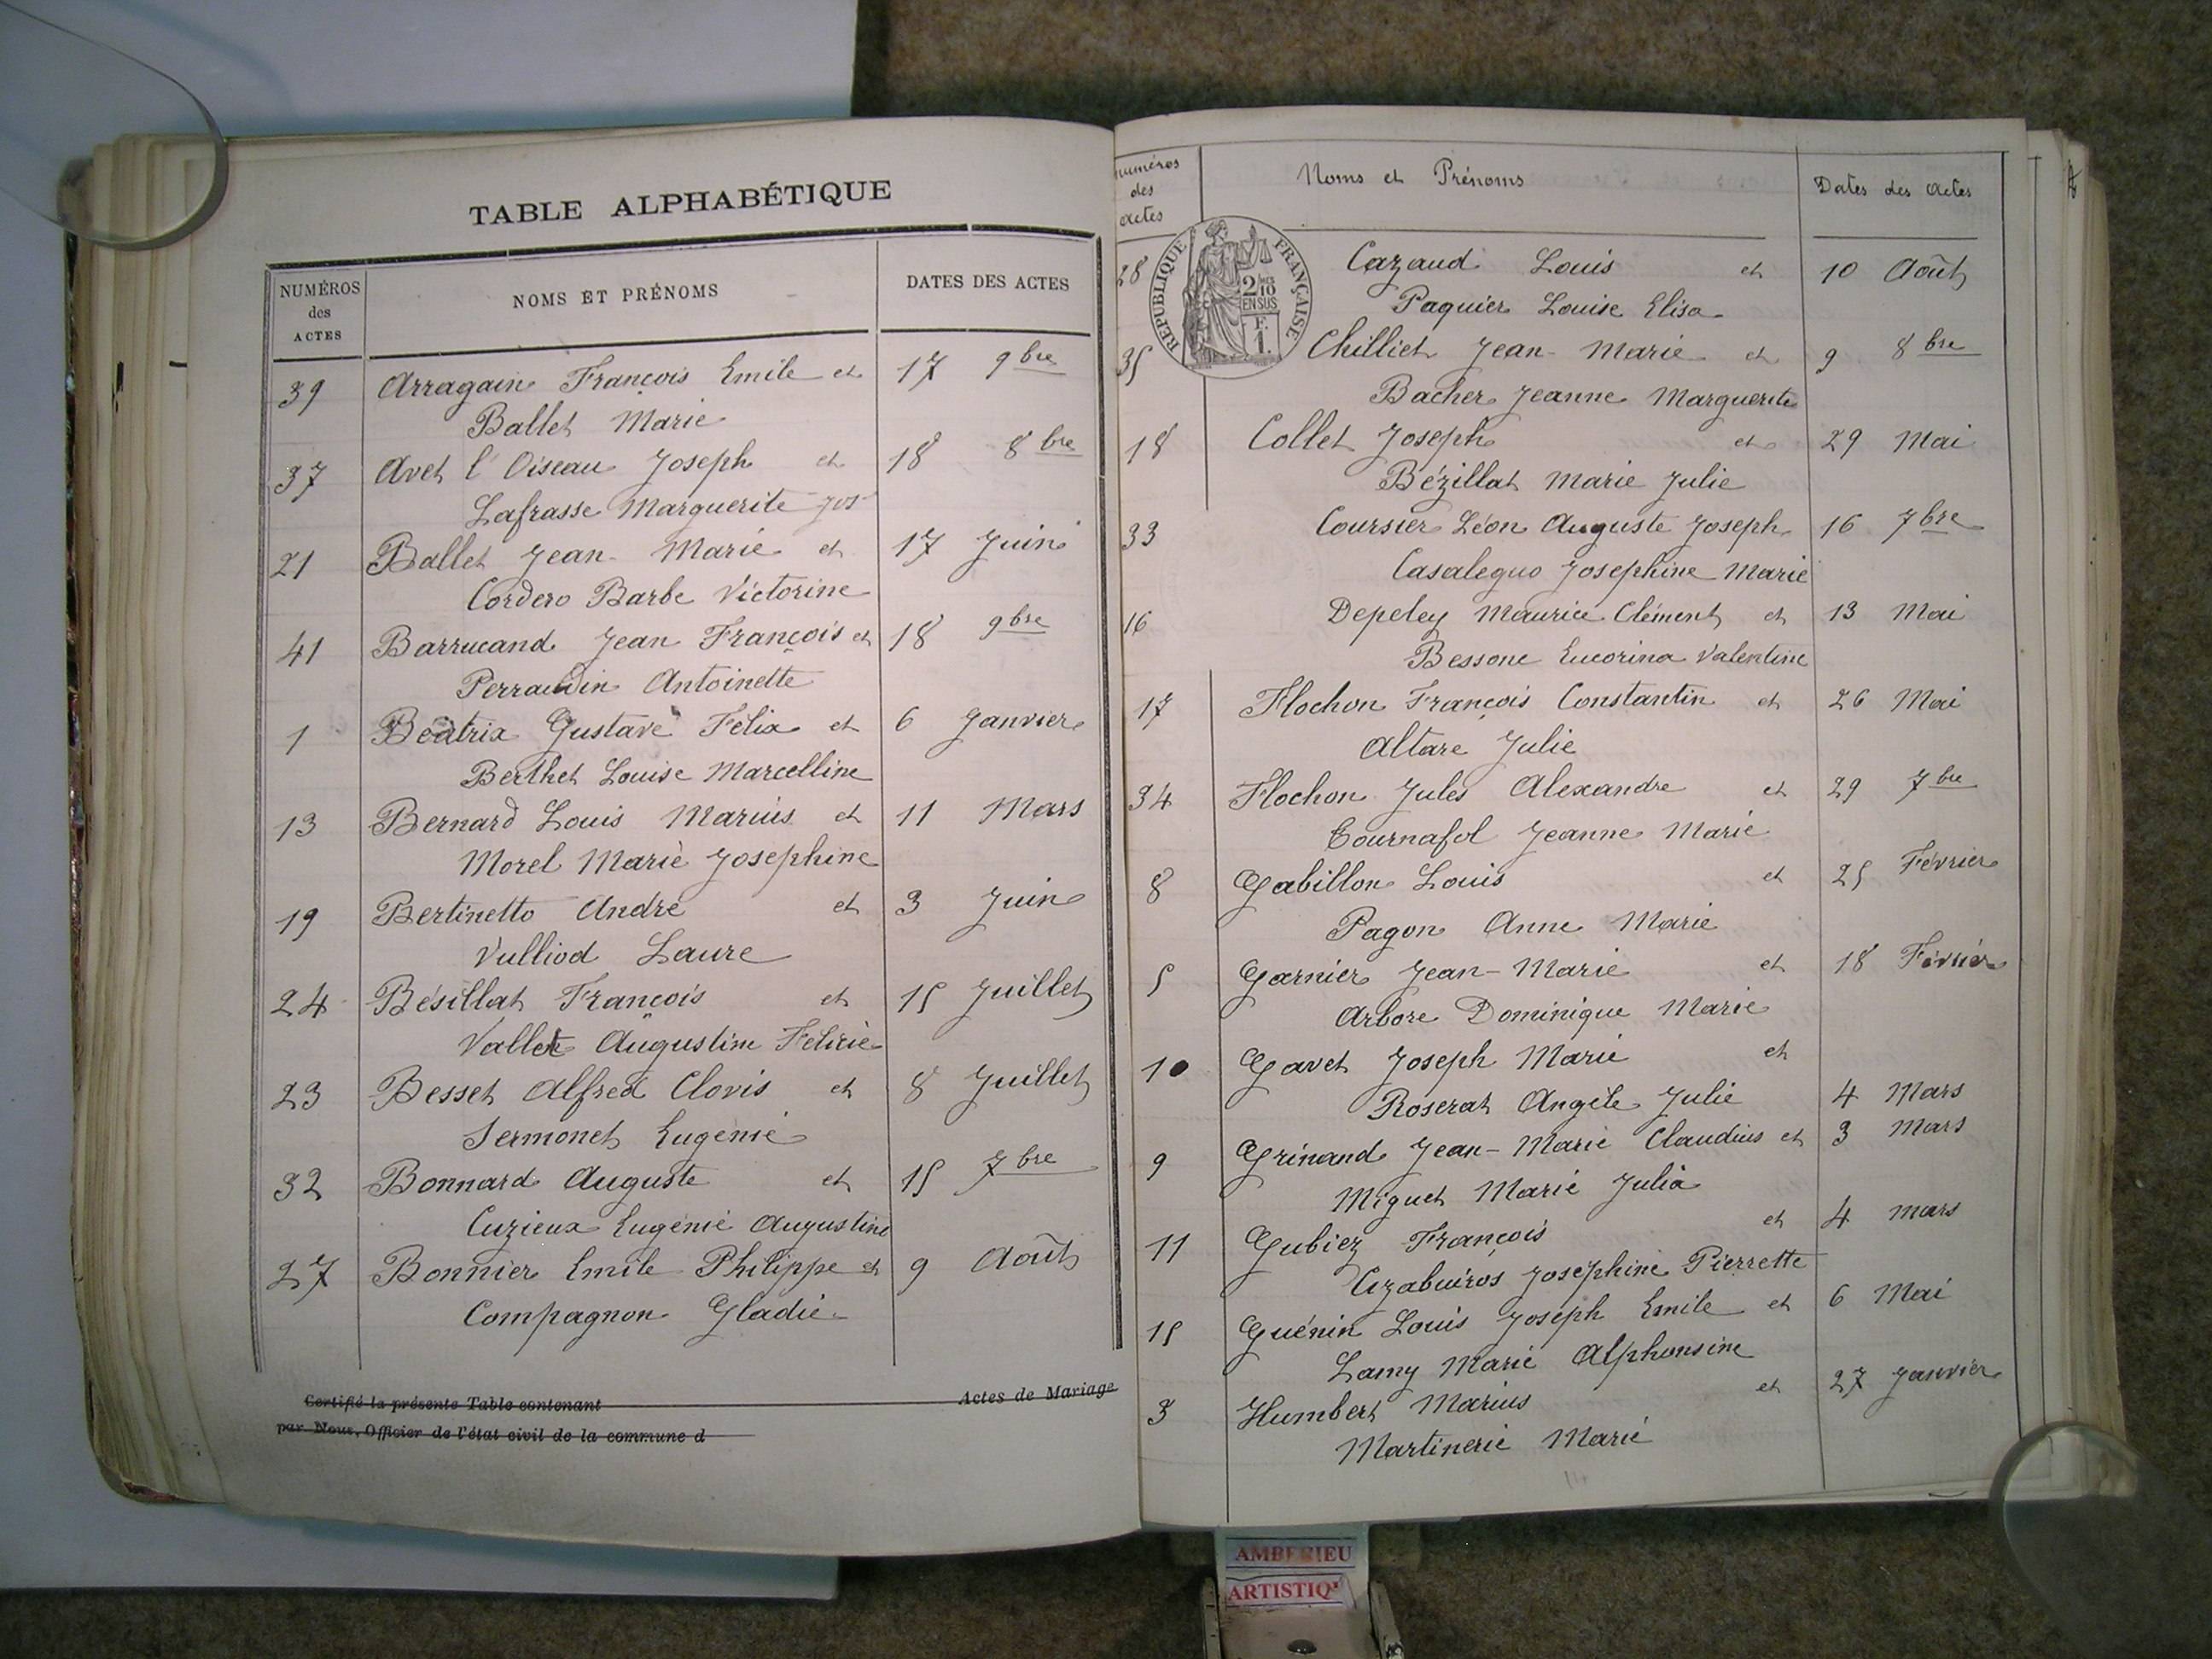 TABLE ALPHABÉTIQUE
NUMÉROS des ACTES NOMS ET PRÉNOMS DATES DES ACTES
39 Arragain François Emile et 17 9bre
Ballet Marie
37 Avet l'Oiseau Joseph et 18 8bre
Lafrasse Marguerite Jos
21 Ballet Jean-Marie et 17 Juin
Cordero Barbe Victorine
41 Barrucand Jean François et 18 9bre
Perraudin Antoinette
1 Béatrix Gustave Félix et 6 Janvier
Berthet Louise Marcelline
13 Bernard Louis Marius et 11 Mars
Morel Marie Josephine
19 Bertinetto André et 3 Juin
Vulliod Laure
24 Bésillat François et 15 Juillet
Vallet Augustine Félicie
23 Besset Alfred Clovis et 8 Juillet
Sermonet Eugénie
32 Bonnard Auguste et 15 7bre
Cuzieux Eugénie Augustine
27 Bonnier Emile Philippe et 9 Août
Compagnon Gladie
Certifié la présente Table contenant Actes de Mariage
par Nous, Officier de l'état civil de la commune d
numéros des actes Noms et Prénoms Dates des actes
RÉPUBLIQUE FRANÇAISE
2/10 EN SUS
F. 1.
28 Cazaud Louis et 10 Août
Paquier Louise Elisa
35 Chilliet Jean-Marie et 9 8bre
Bacher Jeanne Marguerite
18 Collet Joseph et 29 Mai
Bézillat Marie Julie
33 Coursier Léon Auguste Joseph 16 7bre
Casalegno Josephine Marie
16 Depeley Maurice Clément et 13 Mai
Bessone Eucorina Valentine
17 Flochon François Constantin et 26 Mai
Altare Julie
34 Flochon Jules Alexandre et 29 7bre
Tournafol Jeanne Marie
8 Gabillon Louis et 25 Février
Pagon Anne Marie
5 Garnier Jean-Marie et 18 Février
Arbore Dominique Marie
10 Gavet Joseph Marie et
Roserat Angèle Julie 4 Mars
9 Grinand Jean-Marie Claudius et 3 Mars
Miguet Marie Julia
11 Gubiez François et 4 mars
Josephine Pierrette
15 Guénin Louis Joseph Emile et 6 Mai
Lamy Marie Alphonsine
3 Humbert Marius et 27 Janvier
Martinerie Marie
AMBERIEU
ARTISTIQ'